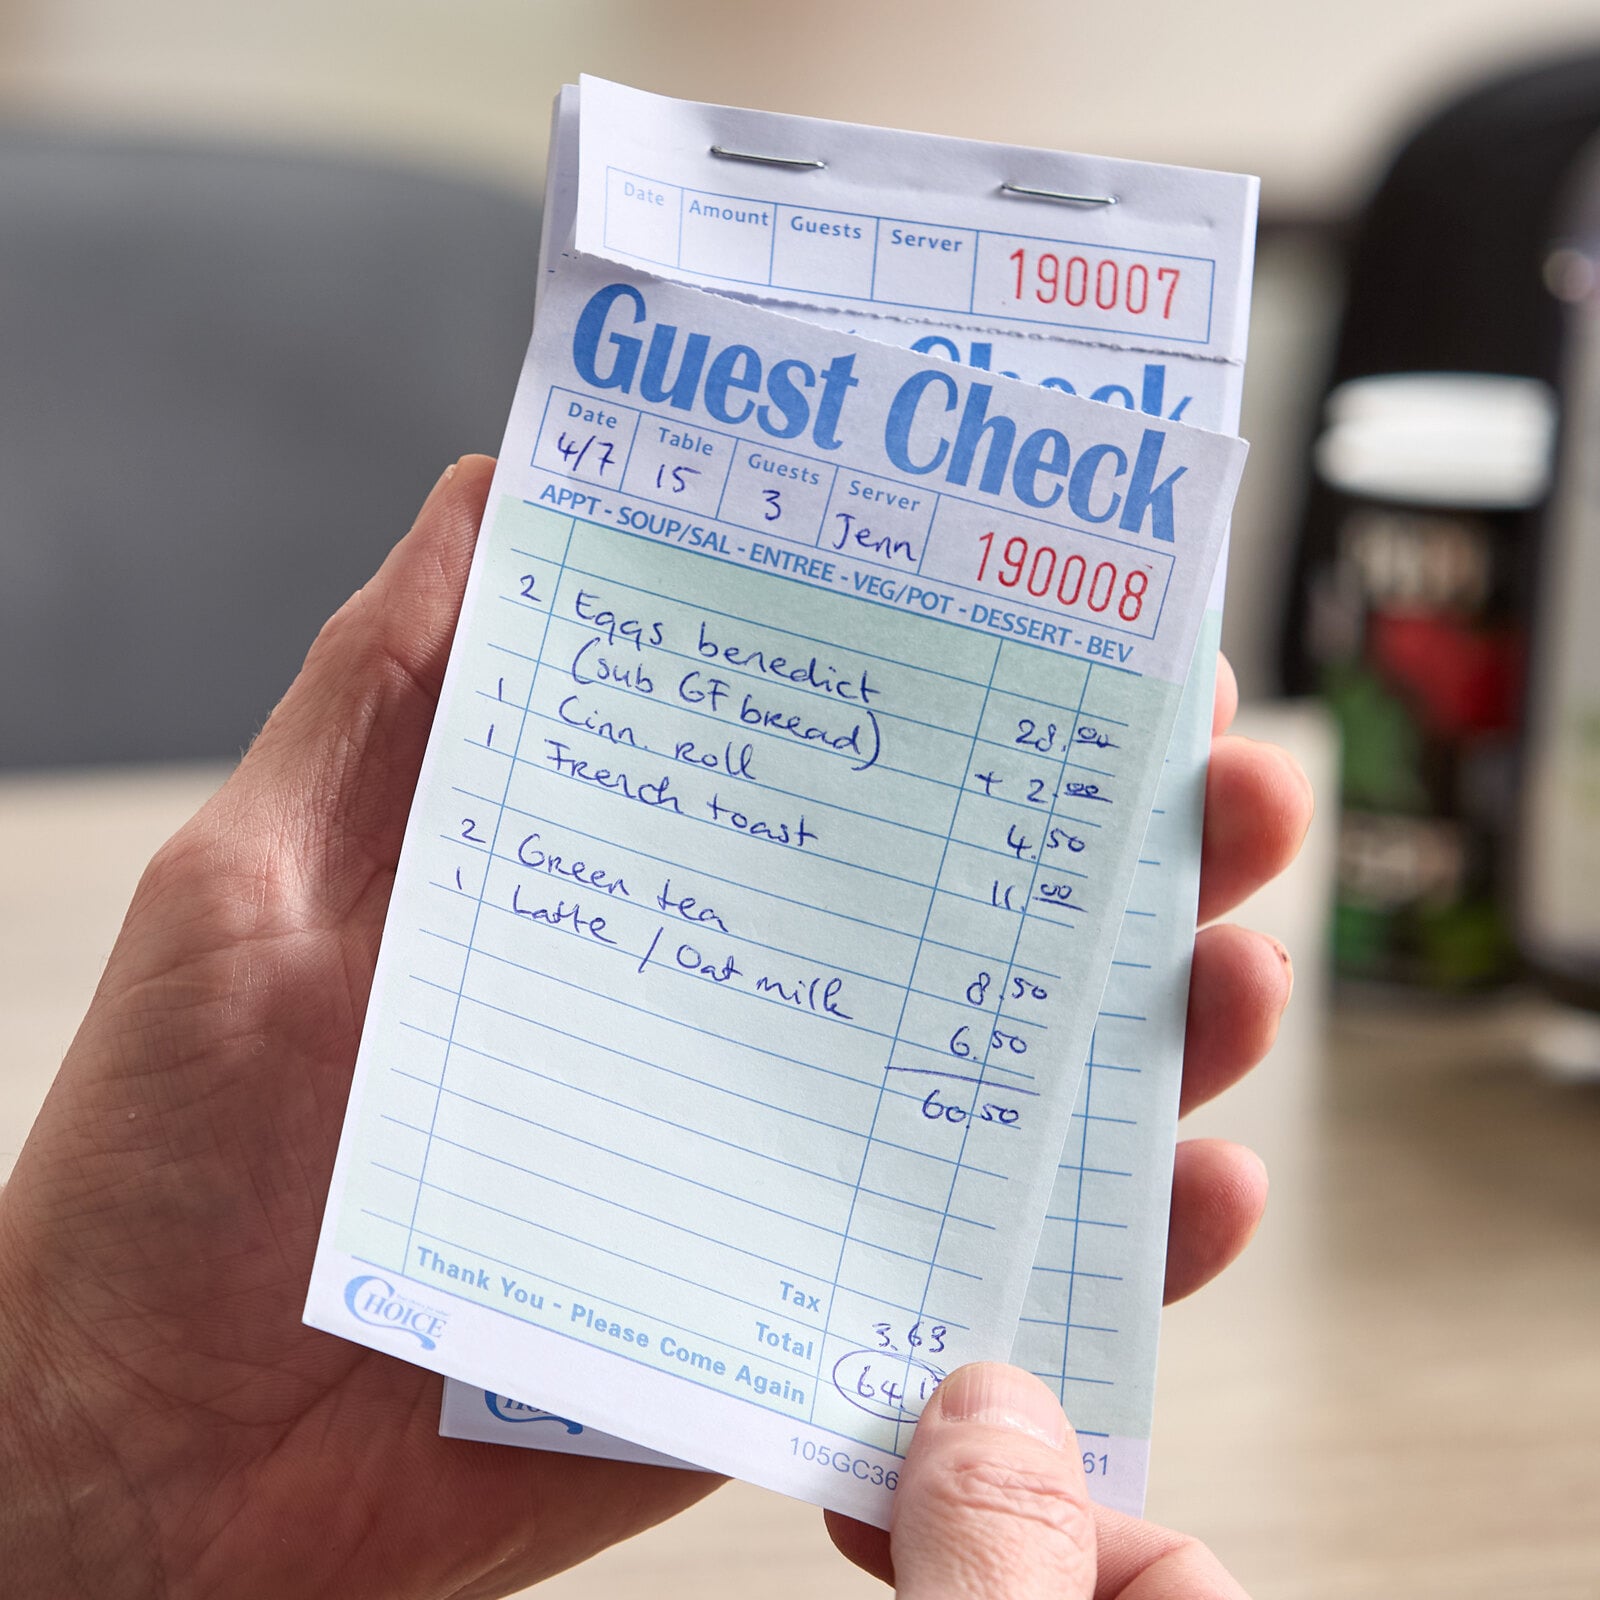 Date Amount Guests Server 190007
Guest Check
Date Table Guests Server
4/7 15 3 Jenn 190008
APPT - SOUP/SAL - ENTREE - VEG/POT - DESSERT - BEV
2 Eggs benedict 28.00
(sub GF bread) + 2.00
1 Cinn. roll 4.50
1 French toast 11.00
2 Green tea 8.50
1 Latte / Oat milk 6.50
60.50
Tax 3.63
Total 64.1
Thank You - Please Come Again
CHOICE
105GC36
61